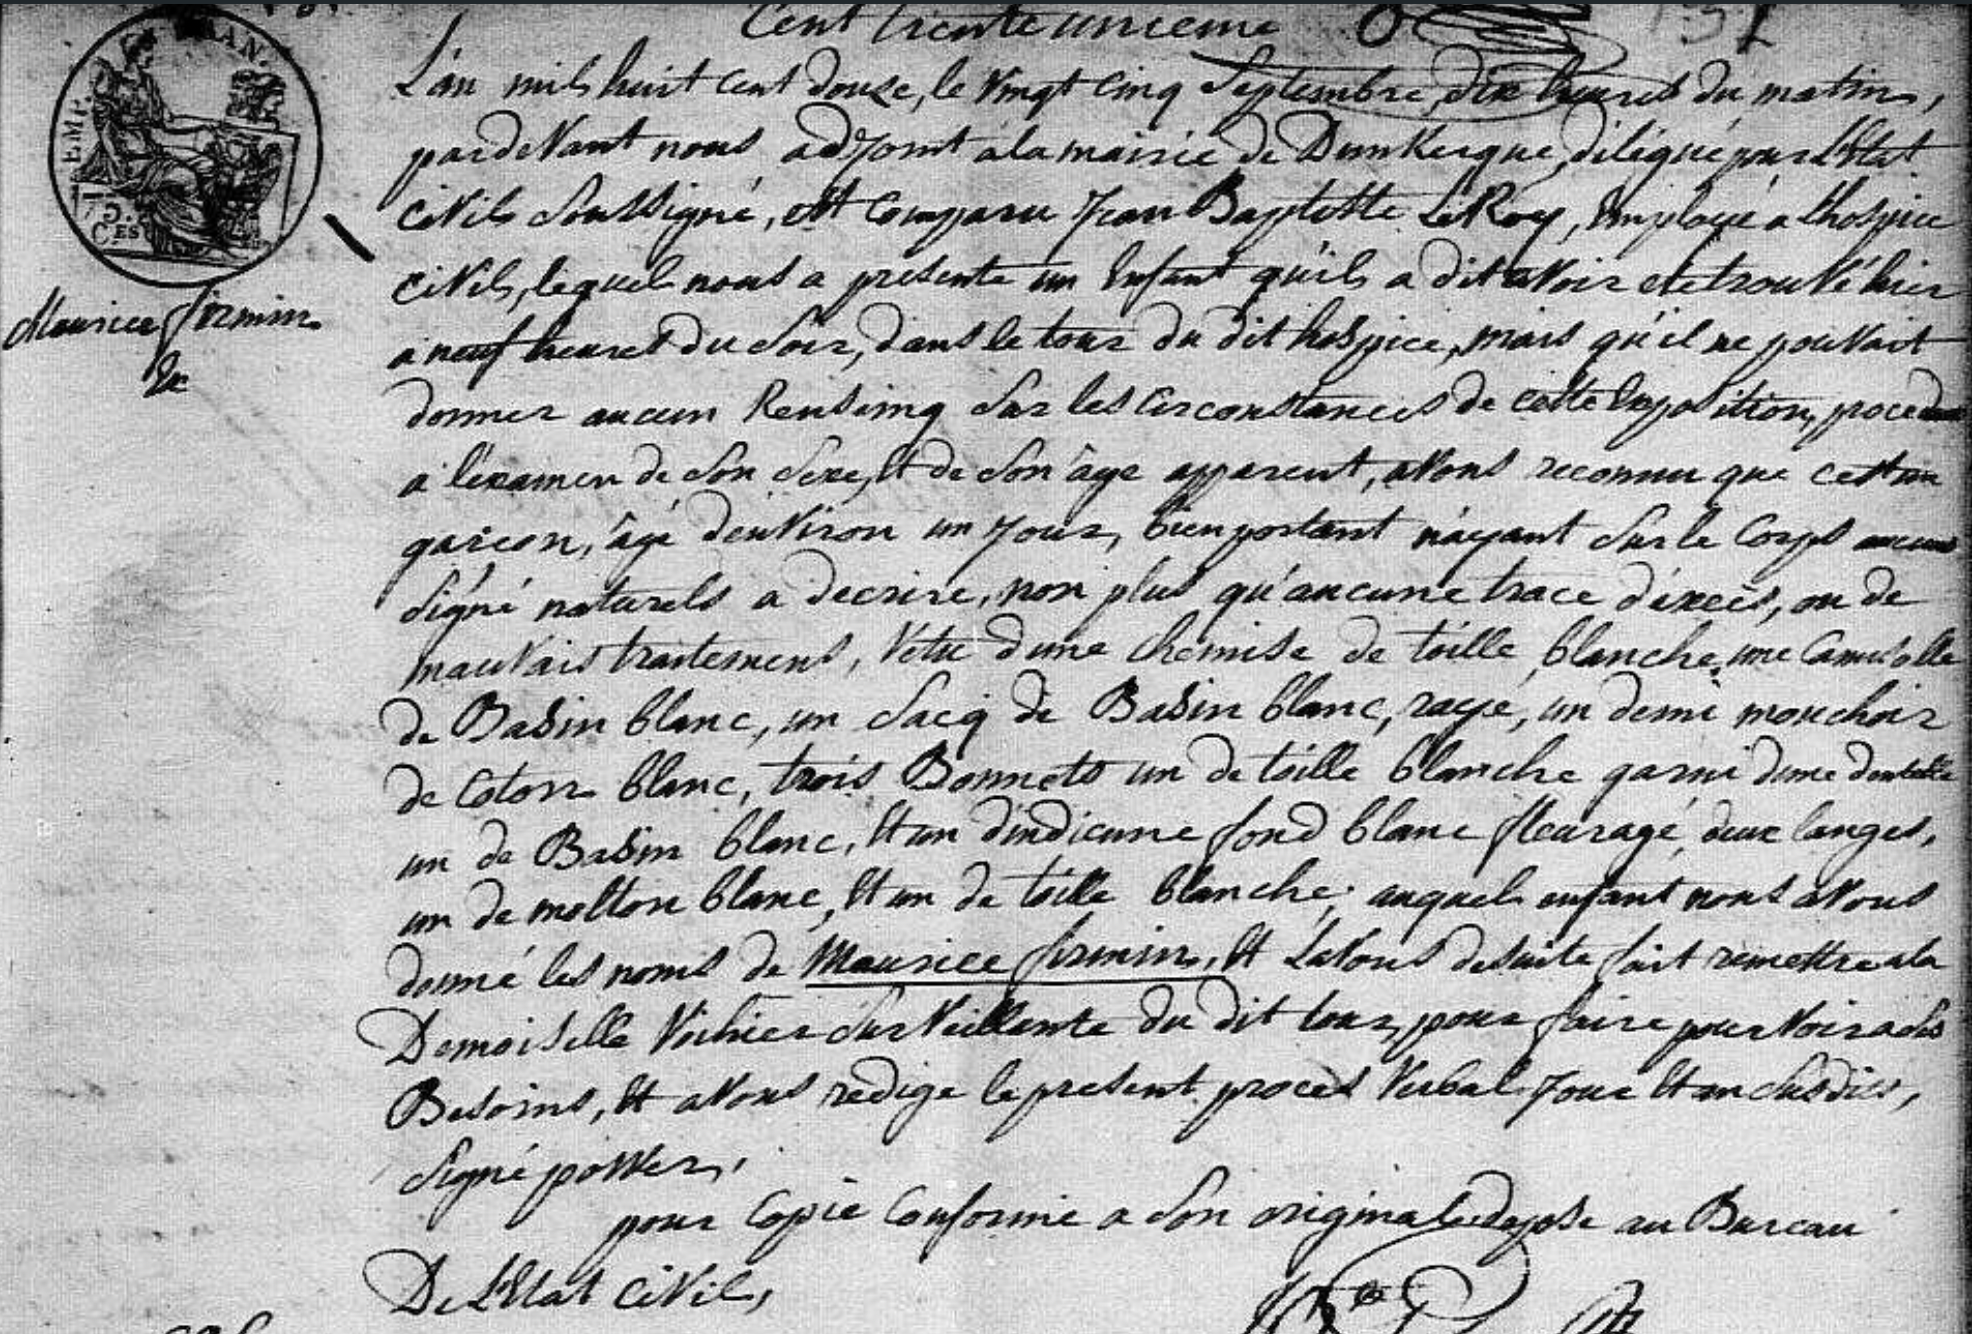 Cent trente unieme
EMP. FRAN.
75. CES
Maurice firmin
L'an mil huit cent douze, le vingt cinq Septembre, dix heures du matin,
pardevant nous adjoint a la mairie de Dunkerque, délégué pour L'Etat
civil Soussigné, est comparu Jean Baptiste LeRoy, Employé a L'hospice
civil, lequel nous a presenté un Enfant qu'il a dit avoir eté trouvé hier
a neuf heures du Soir, dans le tour du dit hospice, mais qu'il ne pouvait
donner aucun Renseing Sur les circonstances de cette Exposition, procedant
a l'examen de Son Sexe, Et de Son âge apparent, avons reconnu que cest un
garcon, âgé d'environ un jour, bien portant n'ayant Sur le Corps aucun
Signe naturels a decrire, non plus qu'aucune trace d'excès, ou de
mauvais traitement, Vétu d'une Chemise de toille blanche, une Camisolle
de Basin blanc, un Sacq de Basin blanc, rayé, un demi mouchoir
de Coton blanc, trois Bonnets un de toille blanche garni d'une dentelle
un de Basin blanc, Et un d'indienne fond blanc fleuragé, deux langes,
un de molton blanc, Et un de toille blanche, auquel enfant nous avons
donné les noms de Maurice firmin, Et L'avons desuite fait remettre a la
Demoiselle Surveillante du dit tour, pour faire pourvoir a ses
Besoins, Et avons redigé le present procès Verbal Jour Et an Susdits,
Signé
pour Copie Conforme a Son original deposé au Bureau
De L'Etat Civil,